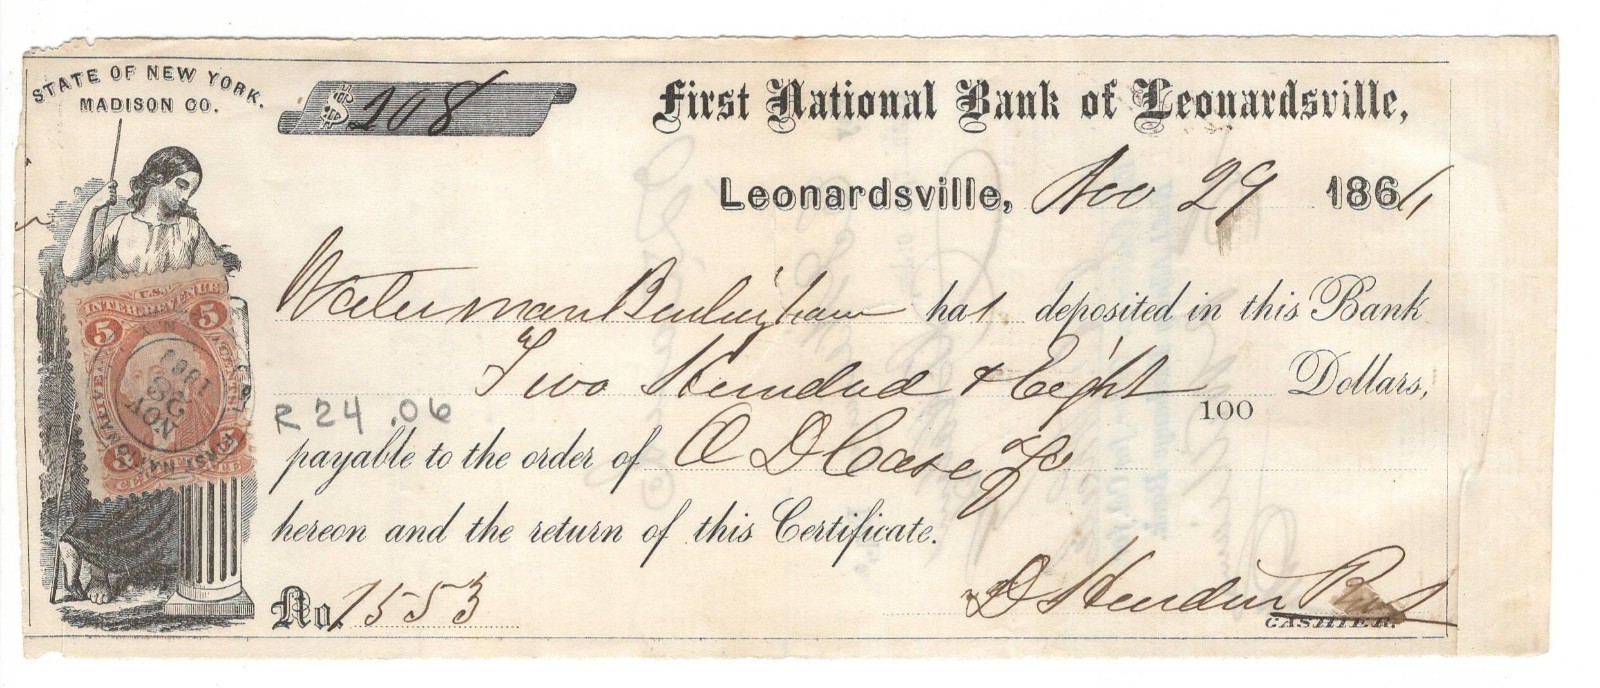 STATE OF NEW YORK.
MADISON CO.
$ 208
First National Bank of Leonardsville,
Leonardsville, Nov 29 1864
Waterman Burlingham has deposited in this Bank
Two Hundred & Eight 100 Dollars,
R24 .06
payable to the order of A D Case
hereon and the return of this Certificate.
No. 1553
D Hardin
CASHIER.
U.S.
INTER. REVENUE
5 5
FIRST NAT
NOV
28